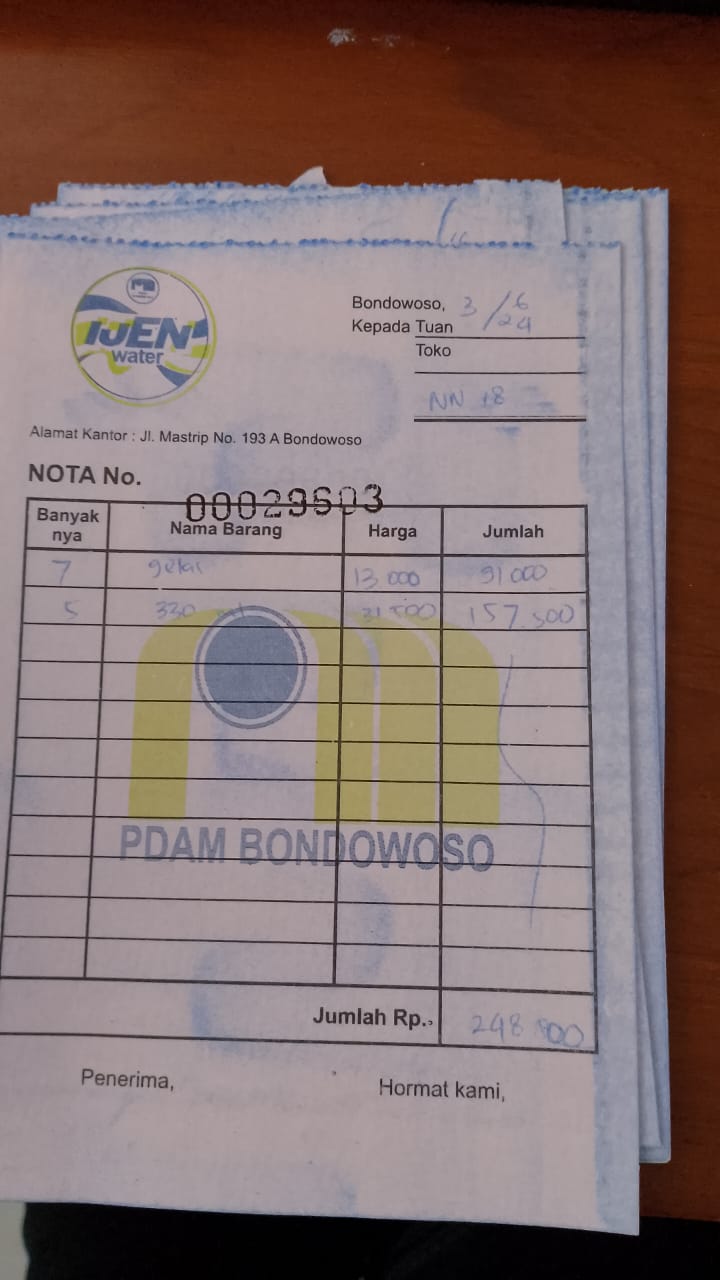 IJEN
water
Bondowoso, 3/6/24
Kepada Tuan
Toko
NN 18
Alamat Kantor : Jl. Mastrip No. 193 A Bondowoso
NOTA No.
00029603
Banyak nya Nama Barang Harga Jumlah
7 gelas 13.000 91.000
5 330 ml 31.500 157.500
PDAM BONDOWOSO
Jumlah Rp. 248.500
Penerima,
Hormat kami,